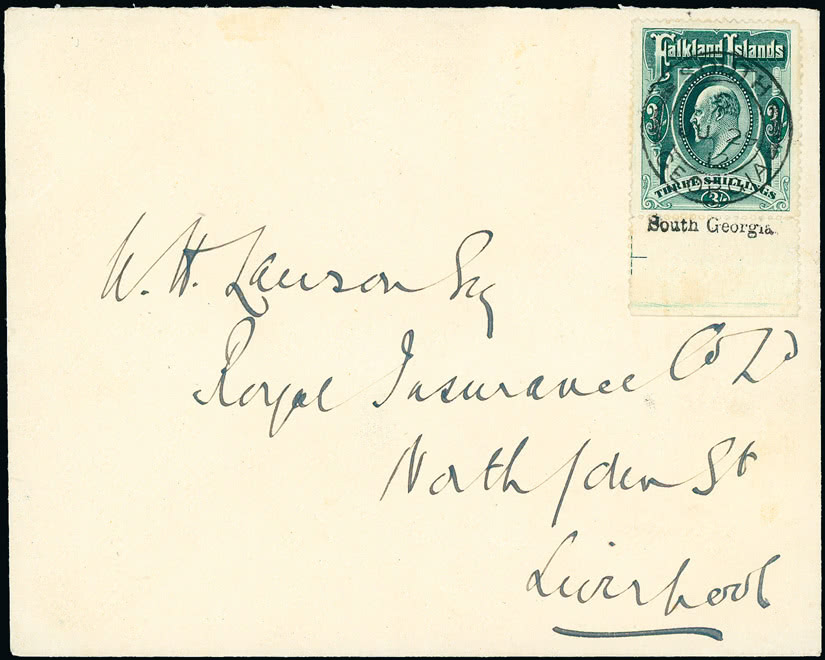 Falkland Islands
SOUTH
3/ 3/
GEORGIA
THREE SHILLINGS
3/
South Georgia
W. H. Lawson Esq
Royal Insurance Co Ld
North John St
Liverpool